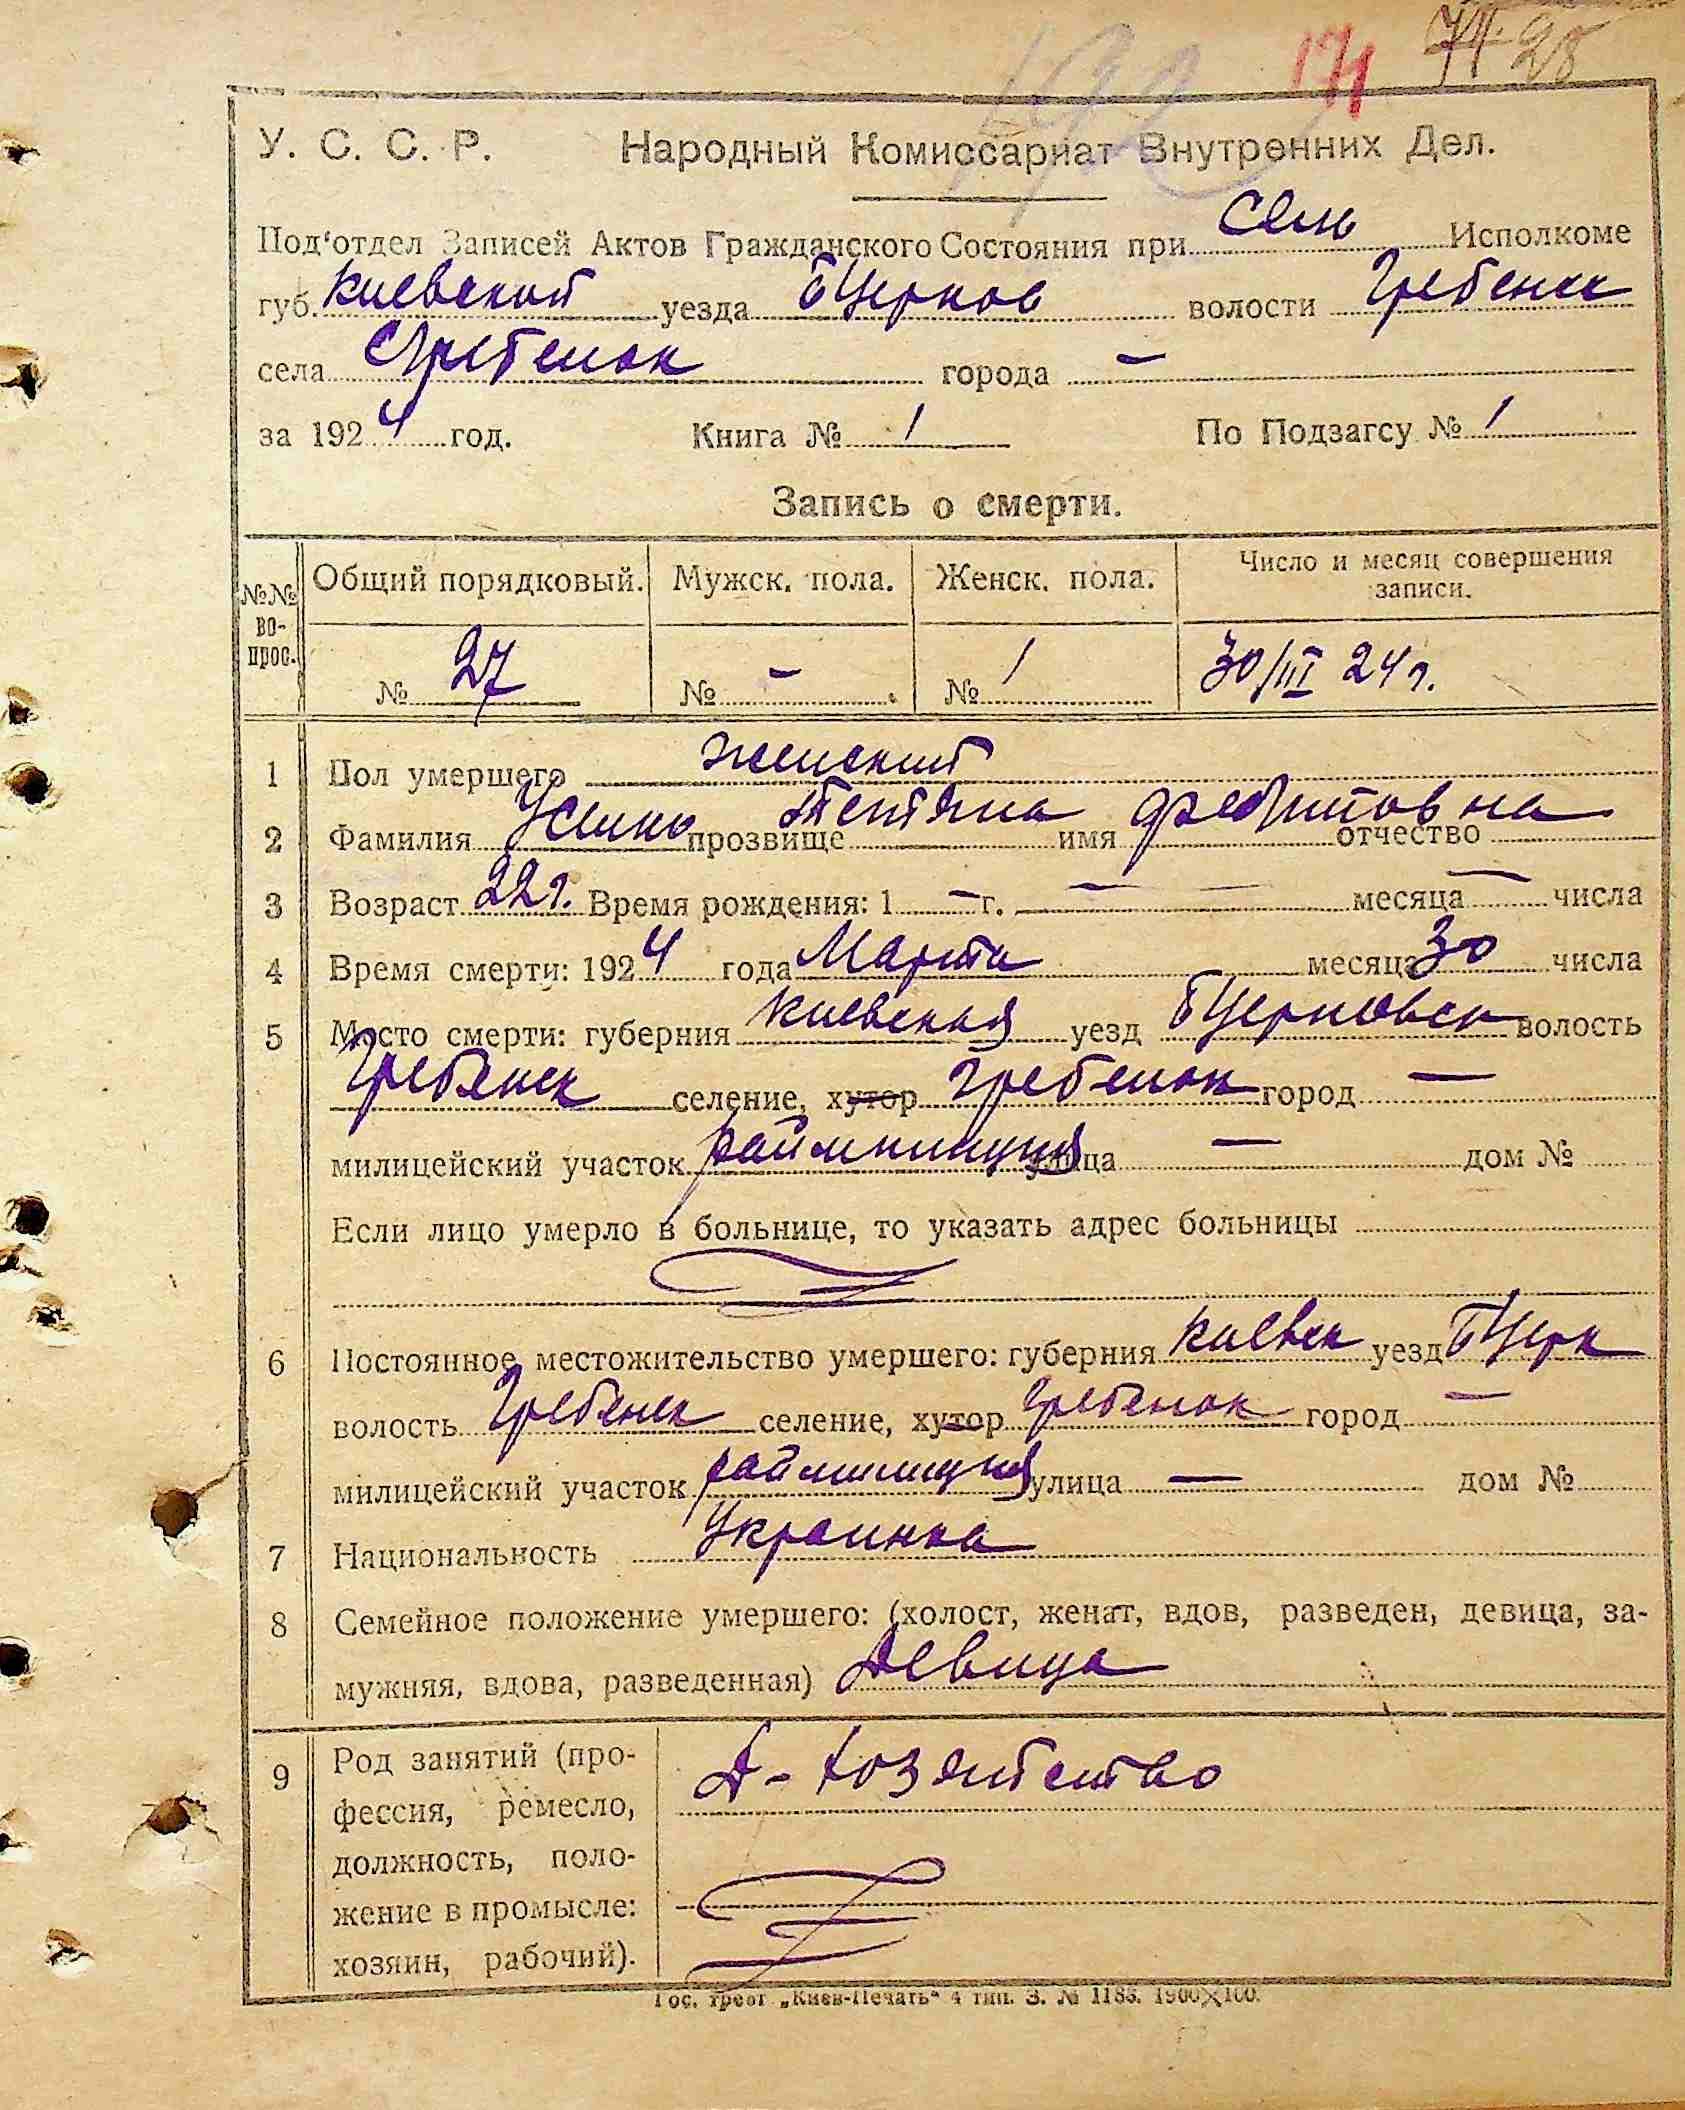 192 171 71. 98
У. С. С. Р. Народный Комиссариат Внутренних Дел.
Под'отдел Записей Актов Гражданского Состояния при Сель Исполкоме
губ. Киевской уезда БЦерков волости Гребенск
села Гребенок города —
за 1924 год. Книга № 1 По Подзагсу № 1
Запись о смерти.
№№ вопрос. Общий порядковый. Мужск. пола. Женск. пола. Число и месяц совершения записи.
№ 27 № – № 1 30/III 24 г.
1 Пол умершего женский
2 Фамилия прозвище Тетяна имя отчество
3 Возраст 22 г. Время рождения: 1 – г. — месяца — числа
4 Время смерти: 1924 года Марта месяца 30 числа
5 Место смерти: губерния Киевская уезд БЦерковск волость
Гребенск селение, хутор Гребенок город —
милицейский участок раймилиция улица — дом №
Если лицо умерло в больнице, то указать адрес больницы
6 Постоянное местожительство умершего: губерния Киевск уезд БЦерк
волость Гребенск селение, хутор Гребенок город —
милицейский участок раймилиция улица — дом №
7 Национальность Украинка
8 Семейное положение умершего: (холост, женат, вдов, разведен, девица, за-
мужняя, вдова, разведенная) Девица
9 Род занятий (про- Д-хозяйство
фессия, ремесло,
должность, поло-
жение в промысле:
хозяин, рабочий).
Гос. трест „Киев-Печать" 4 тип. З. № 1185. 1900×100.